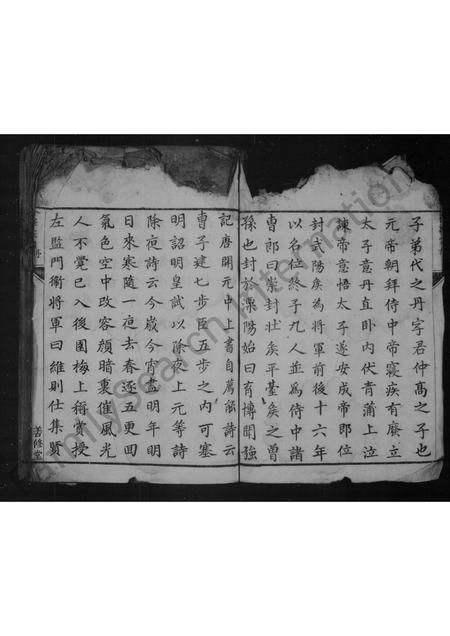 子弟代之丹字君仲高之子也
元帝朝拜侍中帝寢疾有廢立
太子意丹直卧内伏青蒲上泣
諫帝意悟太子遂安成帝即位
封武陽矦為將軍前後十六年
以名位終子九人並為侍中諸
曹郎曰崇封壮矦平臺矦之曽
孫也封於溧陽始曰育博聞強
記唐開元中上書自薦能詩云
曹子建七步臣五步之内可塞
明詔明皇試以除夜上元等詩
除夜詩云今歲今宵盡明年明
日來寒随一夜去春逐五更囬
氣色空中改容顔暗裏催風光
人不覺已入後園梅上稱賞授
左監門衛將軍曰維則仕集賢
善修堂
familysearch International